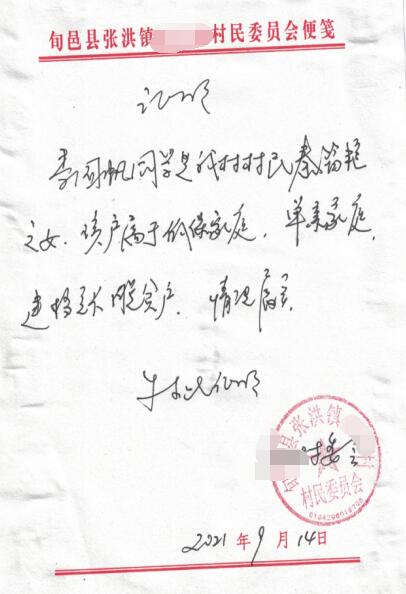 旬邑县张洪镇 村民委员会便笺
证明
秦 帆同学是我村村民秦 艳
之女,该户属于低保家庭,单亲家庭,
建档立卡脱贫户,情况属实,
特此证明
旬邑县张洪镇
村委会
村民委员会
2021年9月14日